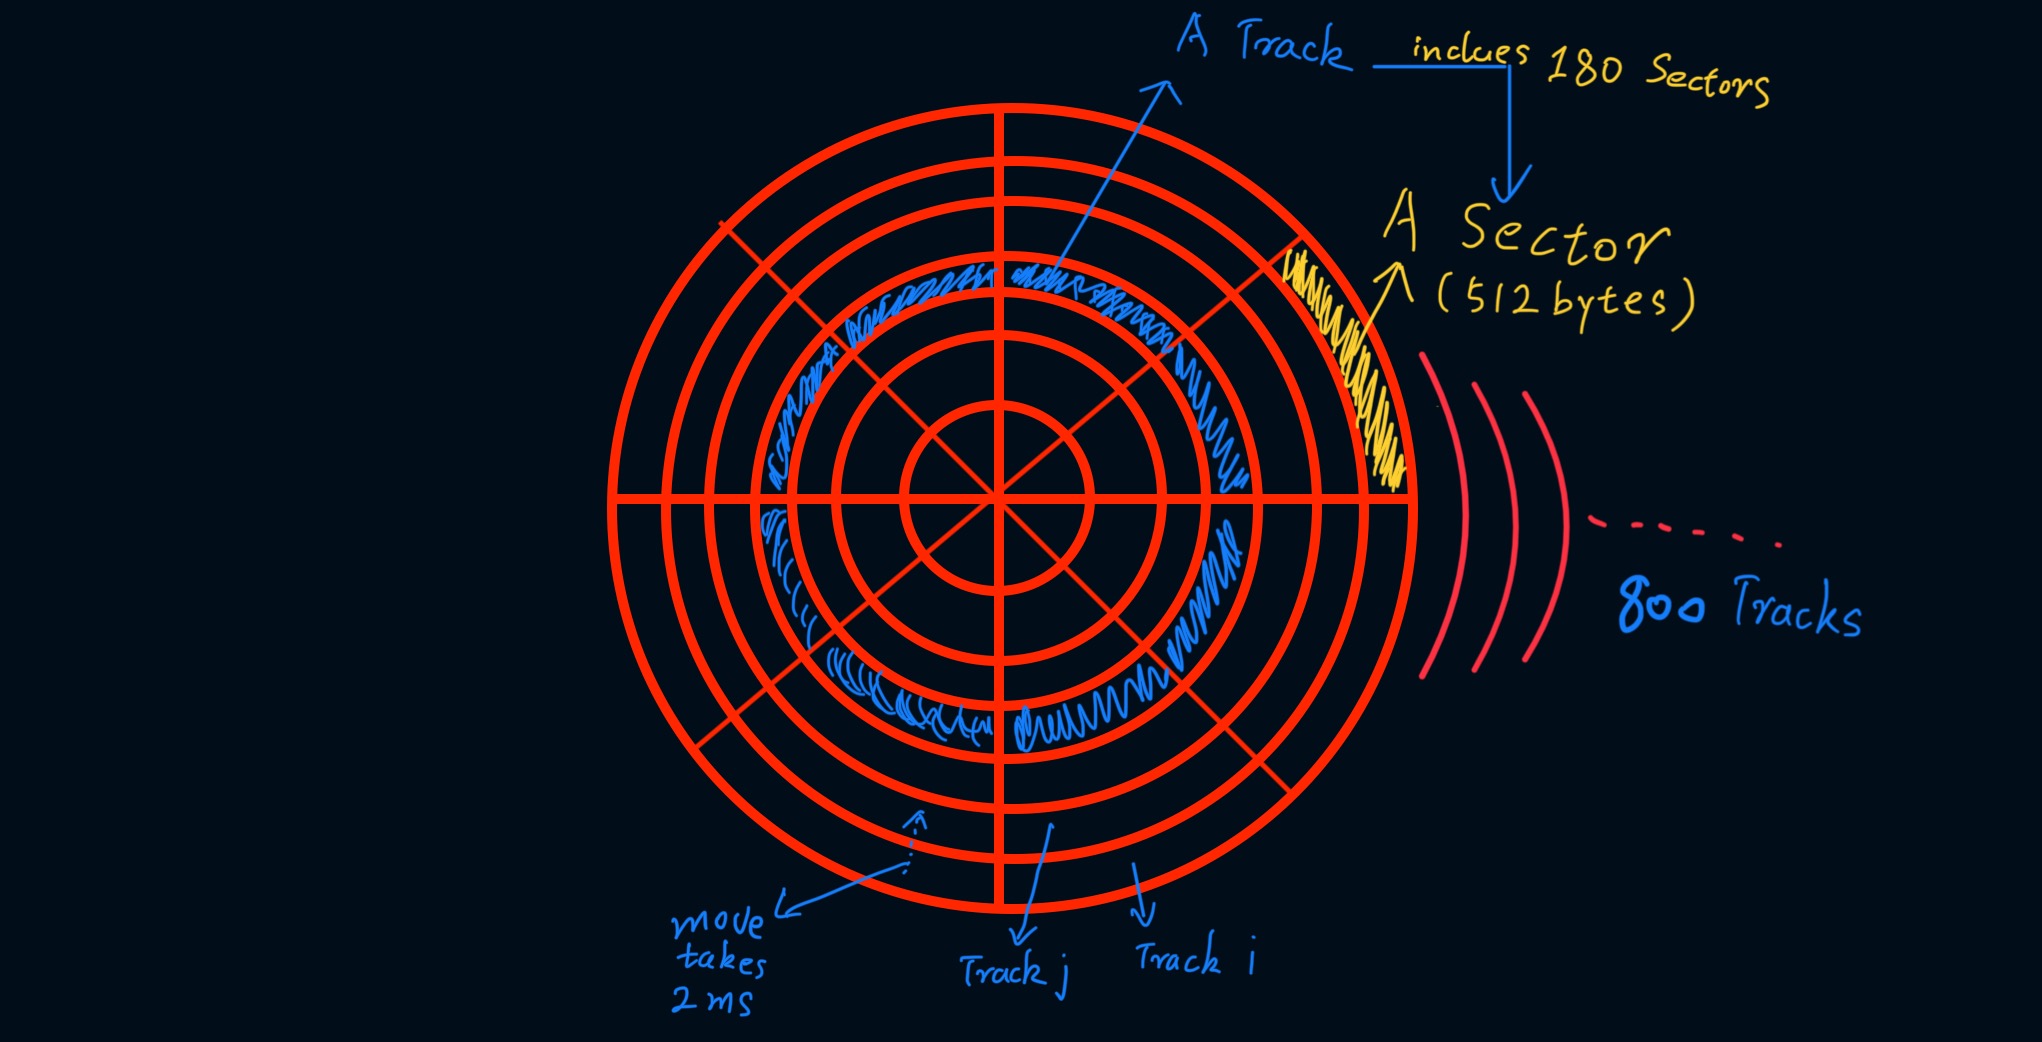 A Track inclues 180 Sectors
A Sector
(512 bytes)
800 Tracks
move
takes
2 ms
Track j
Track i